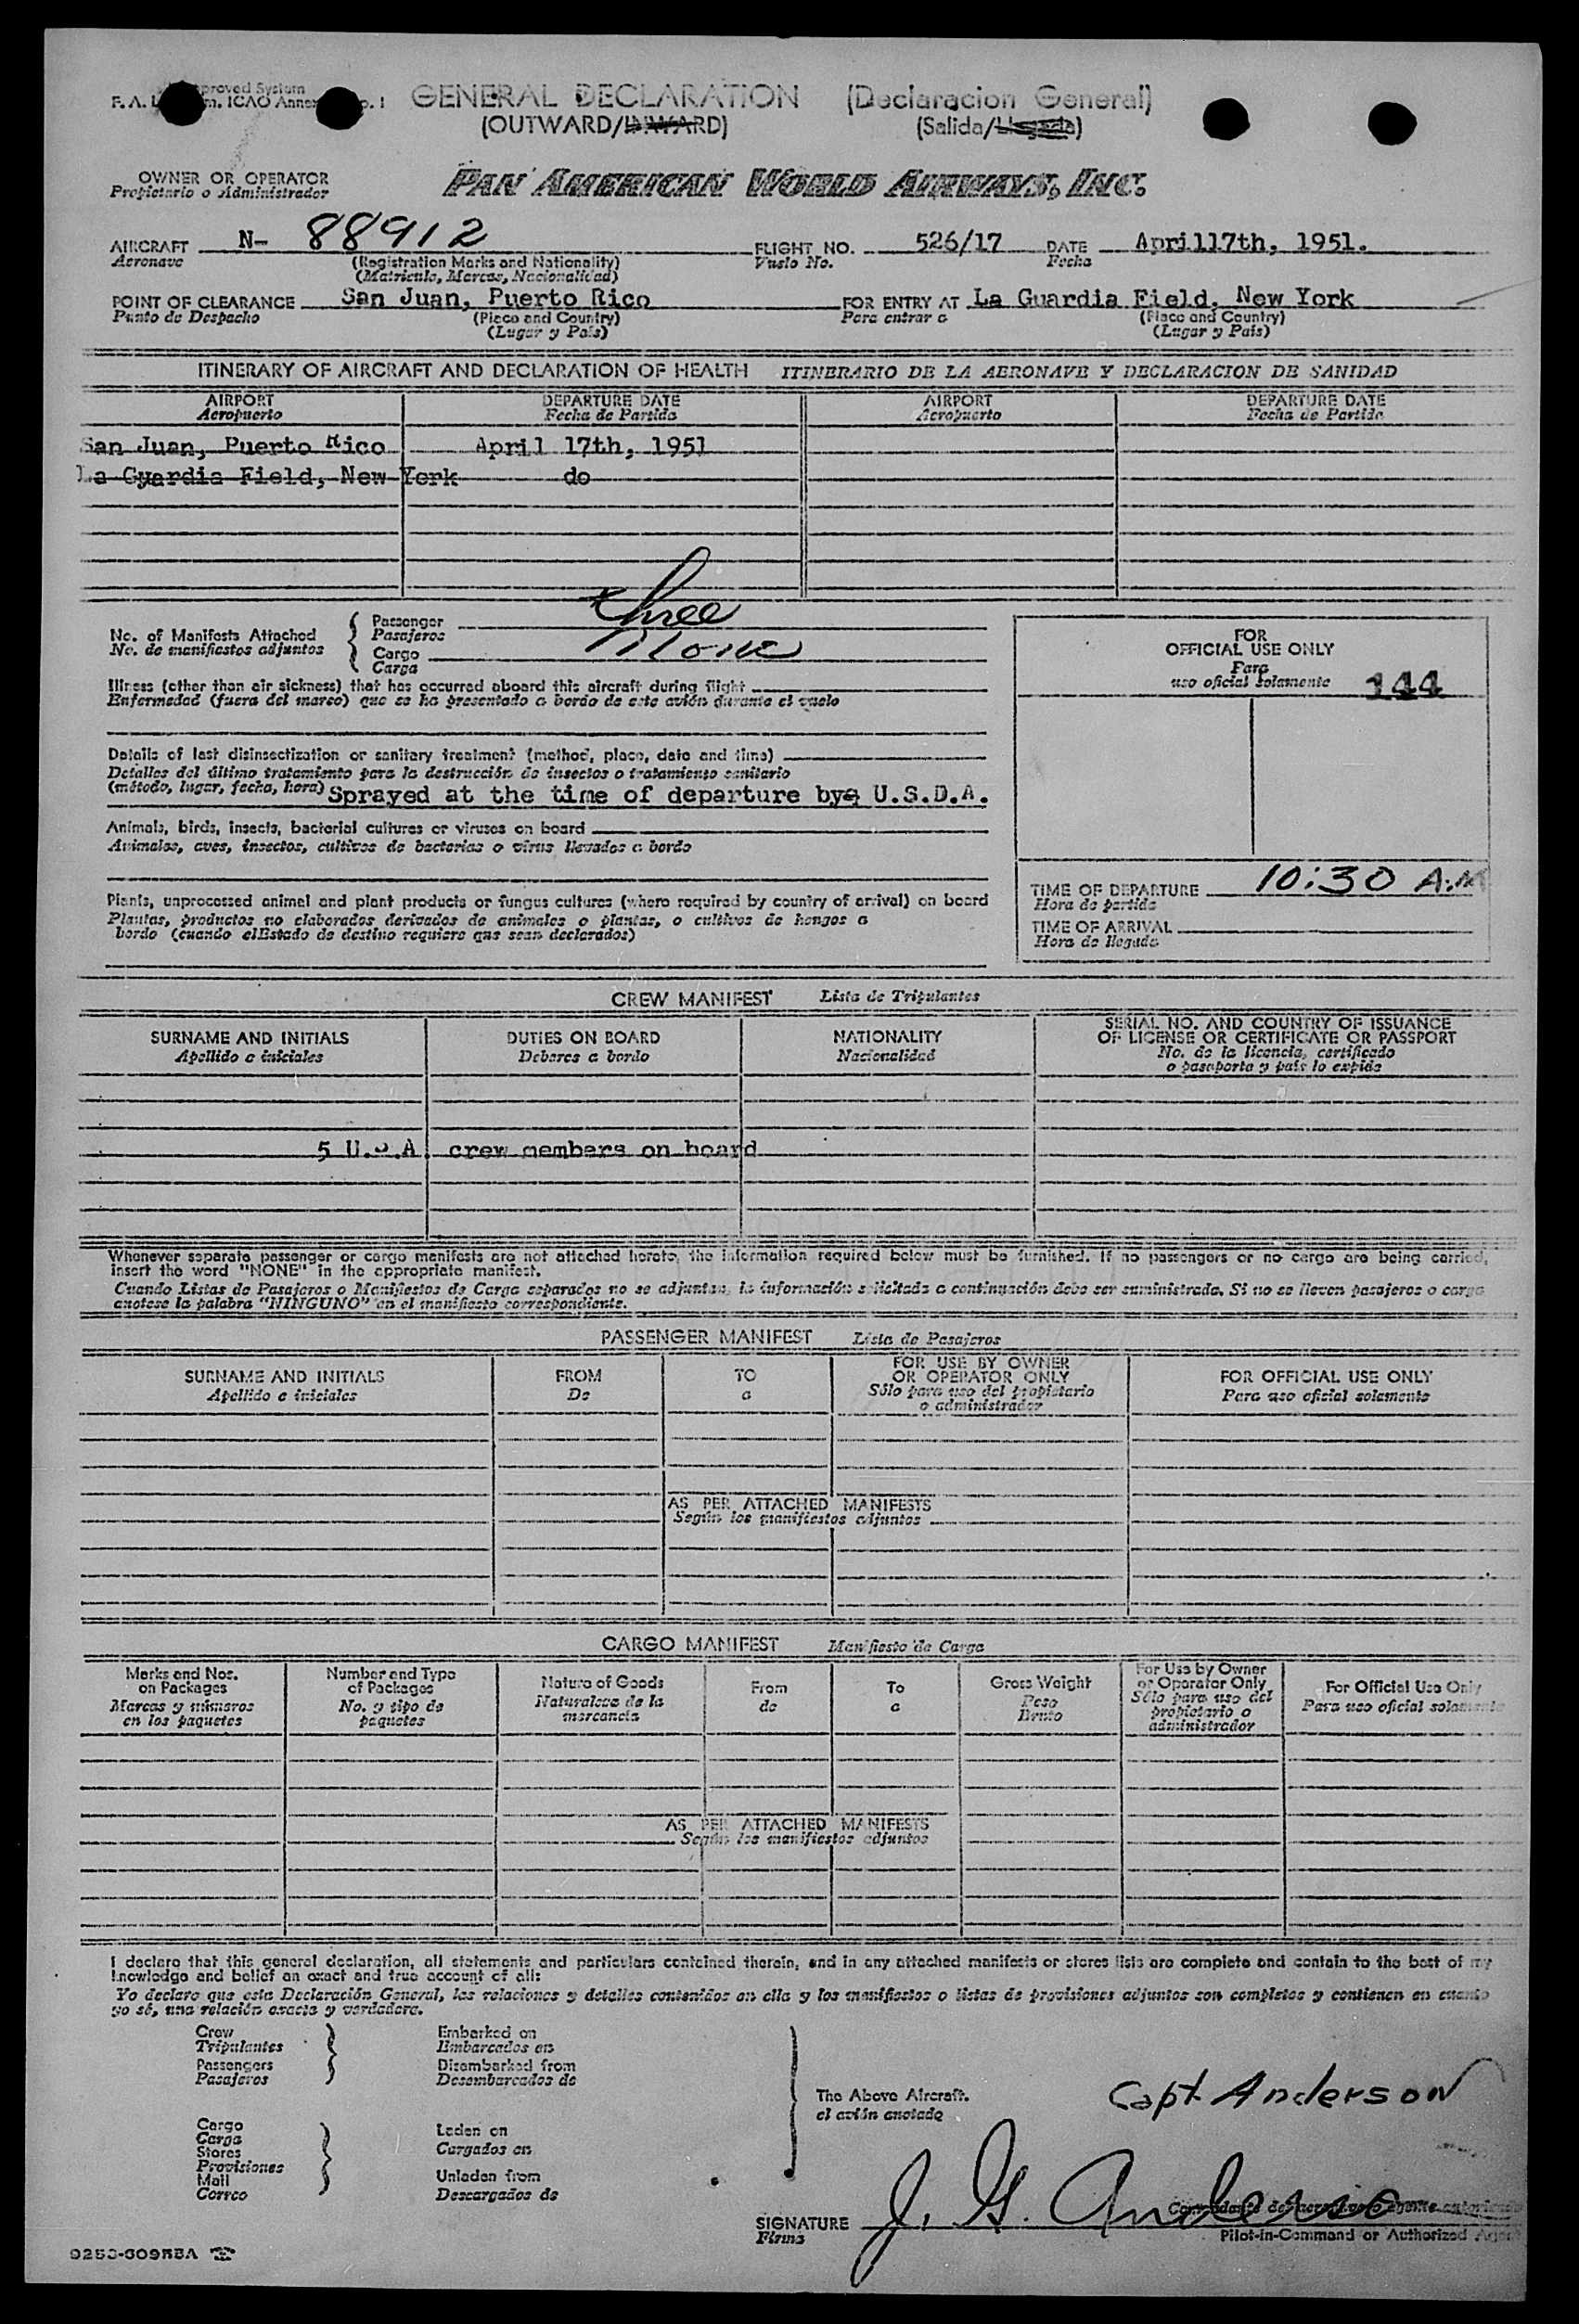 F. A. L. ICAO Annex
GENERAL DECLARATION (Declaracion General)
(OUTWARD/INWARD) (Salida/Llegada)
OWNER OR OPERATOR PAN AMERICAN WORLD AIRWAYS, INC.
Propietario o Administrador
AIRCRAFT N- 88912 FLIGHT NO. 526/17 DATE April17th, 1951.
Aeronave (Registration Marks and Nationality) Vuelo No. Fecha
(Matricula, Marcas, Nacionalidad)
POINT OF CLEARANCE San Juan, Puerto Rico FOR ENTRY AT La Guardia Field, New York
Punto de Despacho (Place and Country) Para entrar a (Place and Country)
(Lugar y País) (Lugar y País)
ITINERARY OF AIRCRAFT AND DECLARATION OF HEALTH ITINERARIO DE LA AERONAVE Y DECLARACION DE SANIDAD
AIRPORT DEPARTURE DATE AIRPORT DEPARTURE DATE
Aeropuerto Fecha de Partida Aeropuerto Fecha de Partida
San Juan, Puerto Rico April 17th, 1951
La Gyardia Field, New York do
No. of Manifests Attached Passenger three
No. de manifiestos adjuntos Pasajeros
Cargo None
Carga
FOR
OFFICIAL USE ONLY
Para
uso oficial solamente 144
Illness (other than air sickness) that has occurred aboard this aircraft during flight
Enfermedad (fuera del mareo) que se ha presentado a bordo de este avión durante el vuelo
Details of last disinsectization or sanitary treatment (method, place, date and time)
Detalles del último tratamiento para la destrucción de insectos o tratamiento sanitario
(método, lugar, fecha, hora) Sprayed at the time of departure by U.S.D.A.
Animals, birds, insects, bacterial cultures or viruses on board
Animales, aves, insectos, cultivos de bacterias o virus llevados a bordo
Plants, unprocessed animal and plant products or fungus cultures (where required by country of arrival) on board
Plantas, productos no elaborados derivados de animales o plantas, o cultivos de hongos a
bordo (cuando elEstado de destino requiere que sean declarados)
TIME OF DEPARTURE 10:30 A.M
Hora de partida
TIME OF ARRIVAL
Hora de llegada
CREW MANIFEST Lista de Tripulantes
SURNAME AND INITIALS DUTIES ON BOARD NATIONALITY SERIAL NO. AND COUNTRY OF ISSUANCE
OF LICENSE OR CERTIFICATE OR PASSPORT
Apellido e iniciales Deberes a bordo Nacionalidad No. de la licencia, certificado
o pasaporte y país lo expide
5 U.S.A. crew members on board
Whenever separate passenger or cargo manifests are not attached hereto, the information required below must be furnished. If no passengers or no cargo are being carried,
insert the word "NONE" in the appropriate manifest.
Cuando Listas de Pasajeros o Manifiestos de Carga separados no se adjuntan, la información solicitada a continuación debe ser suministrada. Si no se lleven pasajeros o carga
anotese la palabra "NINGUNO" en el manifiesto correspondiente.
PASSENGER MANIFEST Lista de Pasajeros
SURNAME AND INITIALS FROM TO FOR USE BY OWNER
OR OPERATOR ONLY FOR OFFICIAL USE ONLY
Apellido e iniciales De a Sólo para uso del propietario
o administrador Para uso oficial solamente
AS PER ATTACHED MANIFESTS
Según los manifiestos adjuntos
CARGO MANIFEST Manifiesto de Carga
Marks and Nos.
on Packages
Marcas y números
en los paquetes
Number and Type
of Packages
No. y tipo de
paquetes
Nature of Goods
Naturaleza de la
mercancía
From
de
To
a
Gross Weight
Peso
Bruto
For Use by Owner
or Operator Only
Sólo para uso del
propietario o
administrador
For Official Use Only
Para uso oficial solamente
AS PER ATTACHED MANIFESTS
Según los manifiestos adjuntos
I declare that this general declaration, all statements and particulars contained therein, and in any attached manifests or stores lists are complete and contain to the best of my
knowledge and belief an exact and true account of all:
Yo declaro que esta Declaración General, las relaciones y detalles contenidos en ella y los manifiestos o listas de provisiones adjuntos son completos y contienen en cuanto
yo sé, una relación exacta y verdadera.
Crew
Tripulantes
Passengers
Pasajeros
Embarked on
Embarcados en
Disembarked from
Desembarcados de
Cargo
Carga
Stores
Provisiones
Mail
Correo
Laden on
Cargados en
Unladen from
Descargados de
The Above Aircraft.
el avión anotado
Capt. Anderson
SIGNATURE J. G. Anderson
Firma
Pilot-in-Command or Authorized Agent